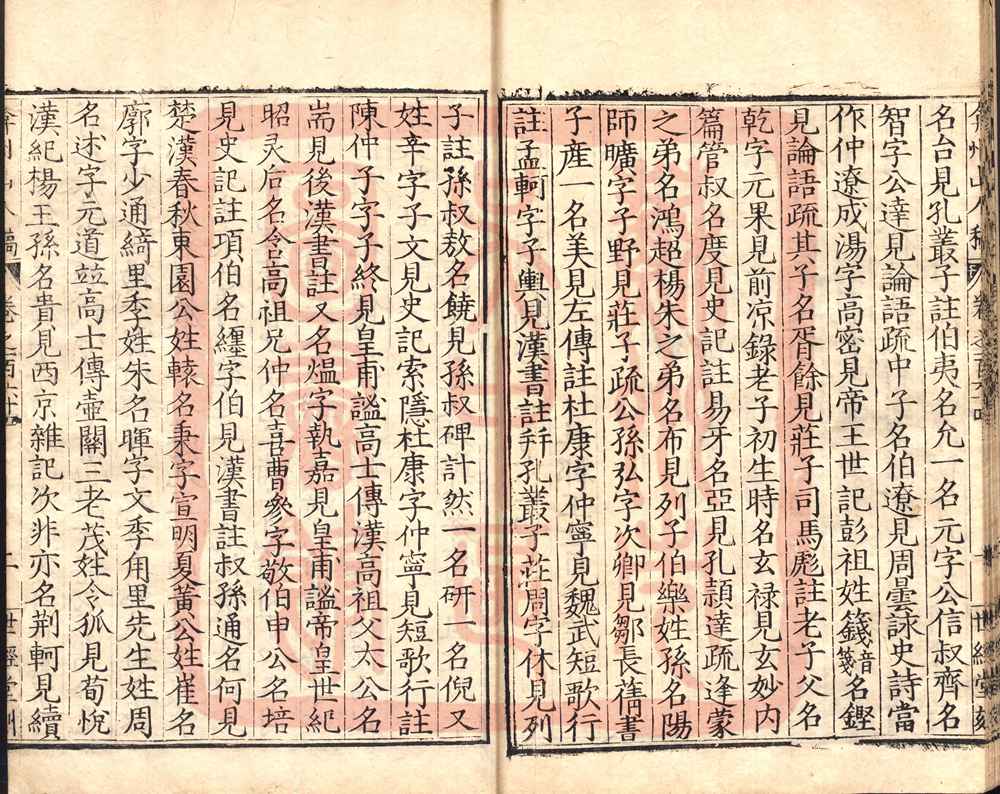 名台見孔叢子註伯夷名允一名元字公信叔齊名
智字公達見論語疏中子名伯遼見周曇詠史詩當
作仲遼成湯字高密見帝王世記彭祖姓籛音箋名鏗
見論語疏其子名胥餘見莊子司馬彪註老子父名
乾字元果見前凉錄老子初生時名玄禄見玄妙内
篇管叔名度見史記註易牙名亞見孔頴達疏逢蒙
之弟名鴻超楊朱之弟名布見列子伯樂姓孫名陽
師曠字子野見莊子疏公孫弘字次卿見鄒長蒨書
子産一名美見左傳註杜康字仲寧見魏武短歌行
註孟軻字子輿見漢書註并孔叢子莊周字休見列
子註孫叔敖名饒見孫叔碑計然一名研一名倪又
姓辛字子文見史記索隱杜康字仲寧見短歌行註
陳仲子字子終見皇甫謐高士傳漢高祖父太公名
耑見後漢書註又名煴字執嘉見皇甫謐帝皇世紀
昭灵后名含高祖兄仲名喜曹參字敬伯申公名培
見史記註項伯名纒字伯見漢書註叔孫通名何見
楚漢春秋東園公姓轅名秉字宣明夏黃公姓崔名
廓字少通綺里季姓朱名暉字文季甪里先生姓周
名述字元道竝高士傳壺關三老茂姓令狐見荀悅
漢紀楊王孫名貴見西京雜記次非亦名荆軻見續